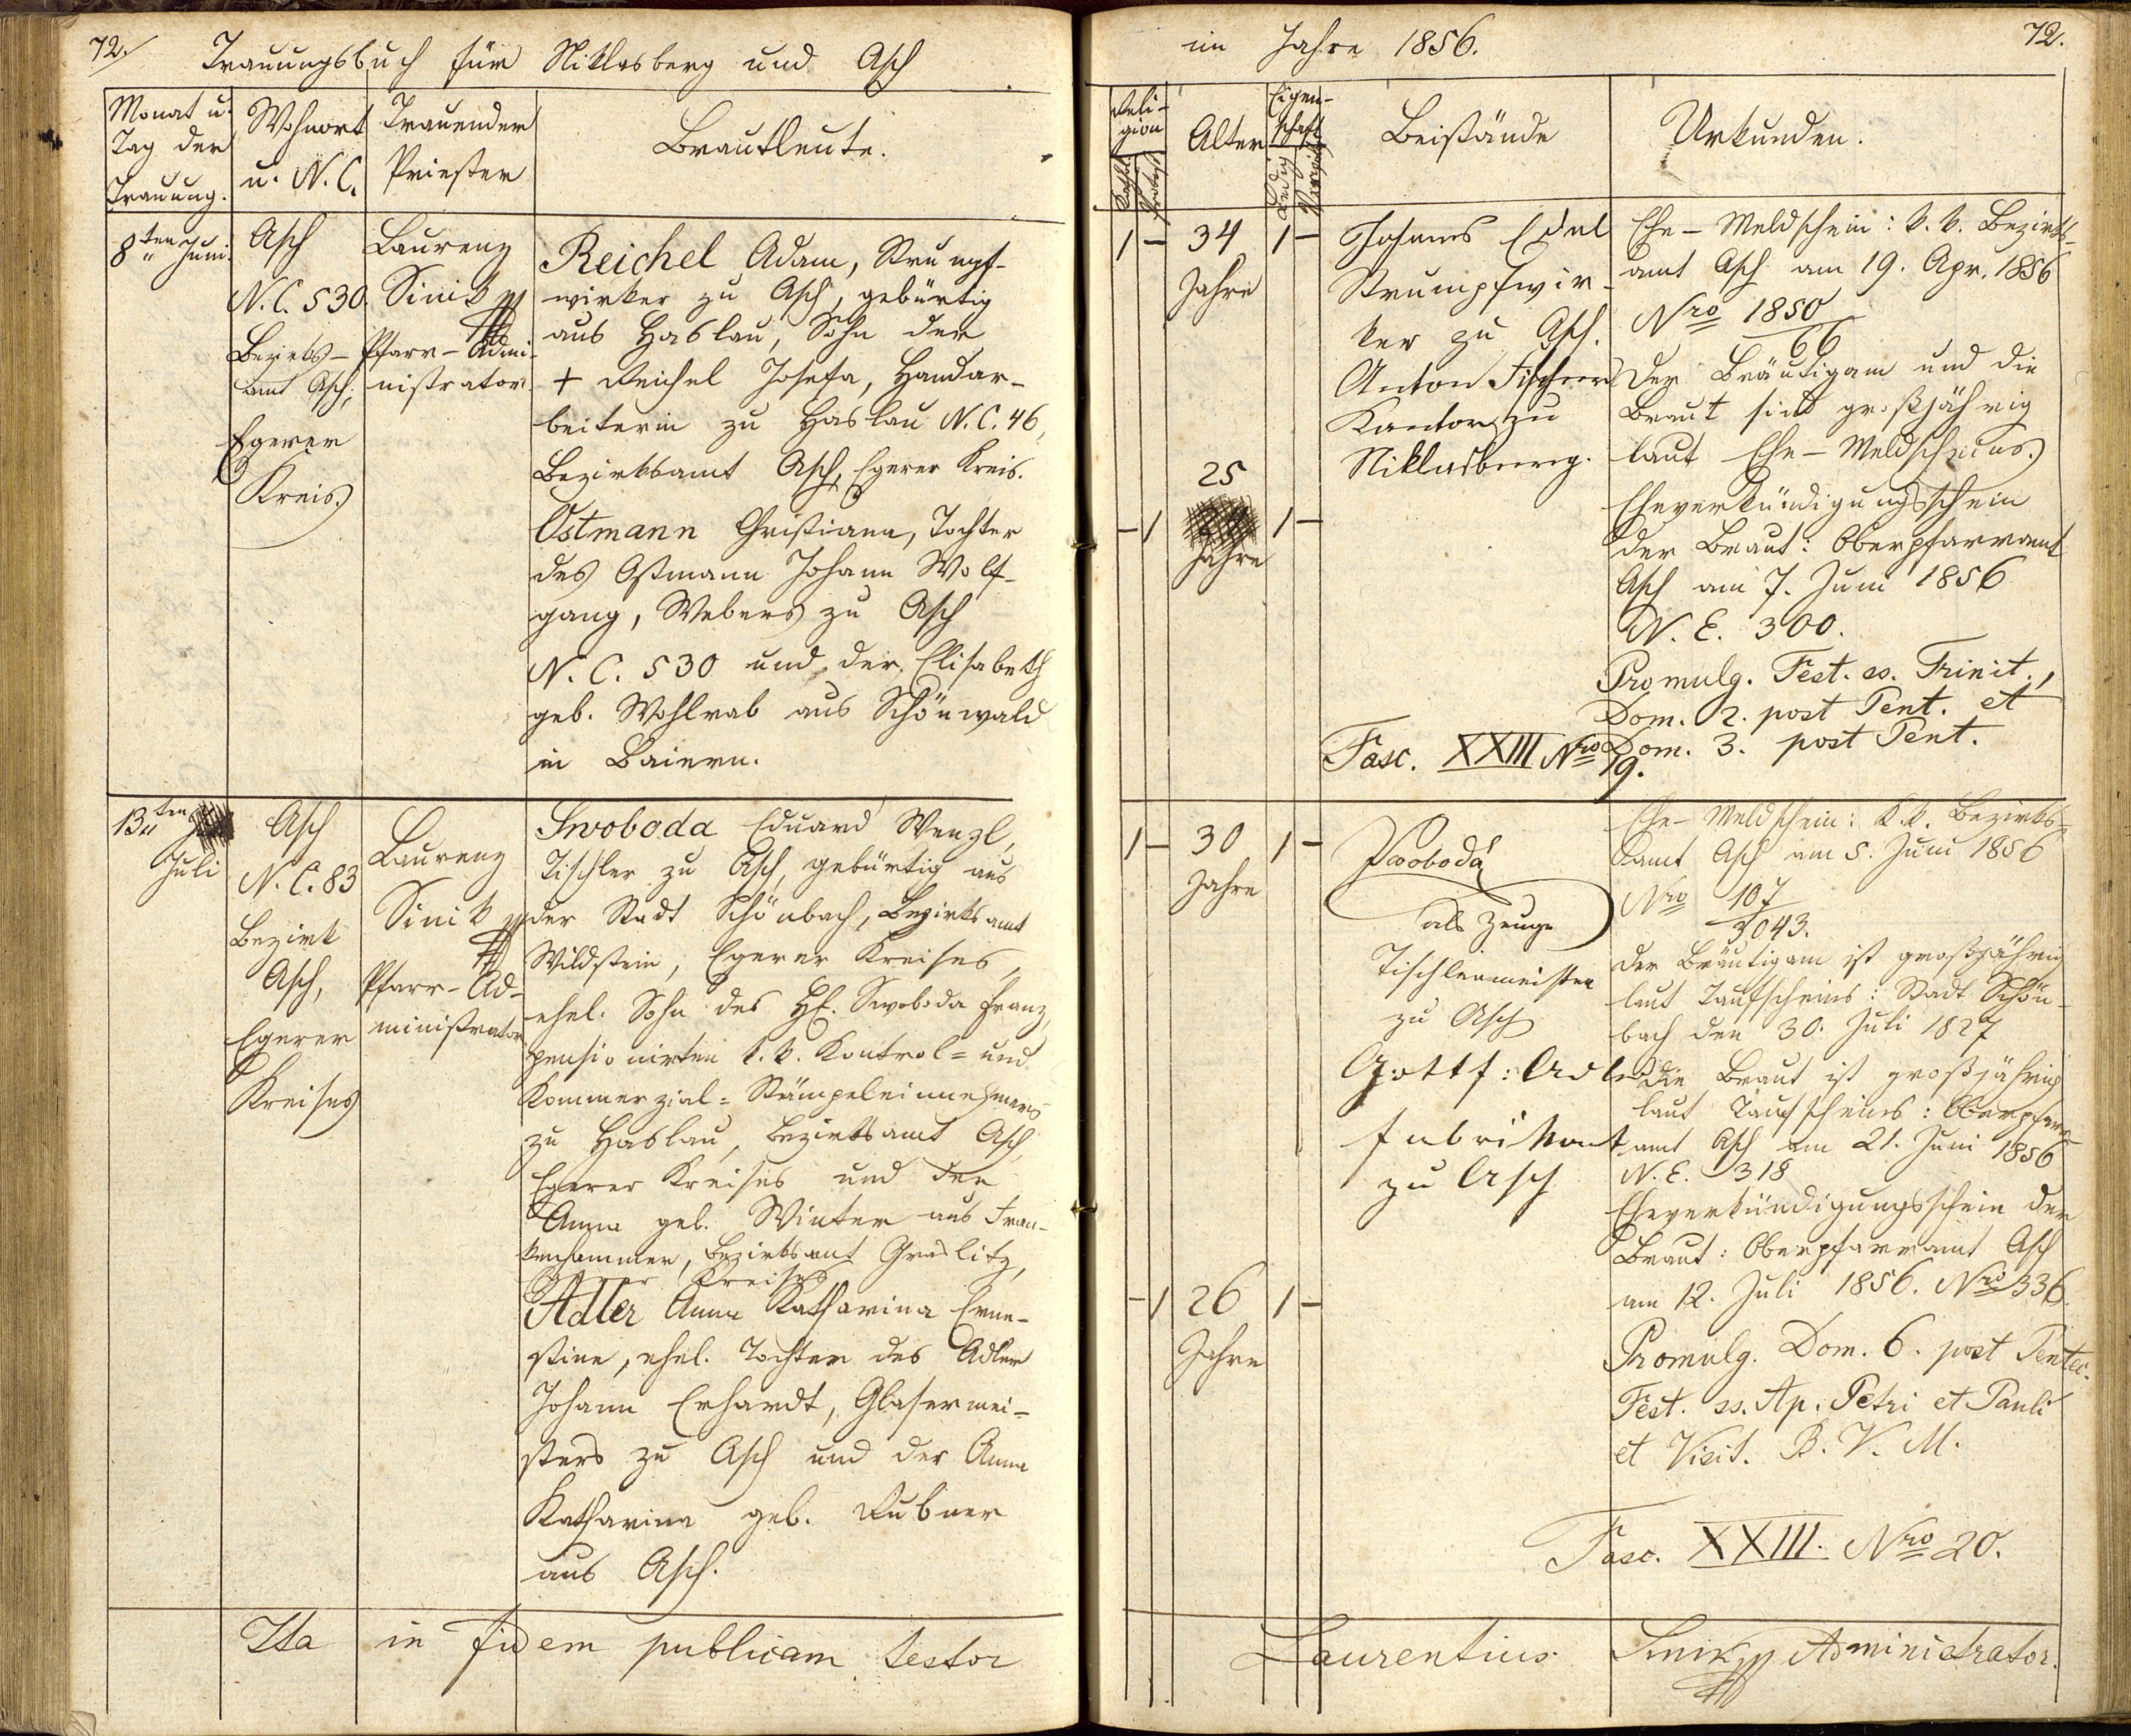 72. Trauungsbuch für Niklasberg und Asch
Monat u.
Tag der
Trauung.
Wohnort
u. N. C.
Trauender
Priester
Brautleute.
8ten Juni
Asch
N. C. 530
Bezirks-
amt Asch,
Egerer
Kreis.
Laurenz
Sinik
Pfarr-Admi-
nistrator.
Reichel Adam, Strumpf-
wirker zu Asch, gebürtig
aus Haslau, Sohn der
+ Reichel Josefa, Handar-
beiterin zu Haslau N. C. 46,
Bezirksamt Asch, Egerer Kreis.
Ostmann Christiana, Tochter
des Ostmann Johann Wolf-
gang, Webers zu Asch
N. C. 530 und der Elisabeth
geb. Wohlrab aus Schönwald
in Baiern.
13ten
Juli
Asch
N. C. 83
Bezirk
Asch,
Egerer
Kreises
Laurenz
Sinik
Pfarr-Ad-
ministrator
Swoboda Eduard Wenzl,
Tischler zu Asch, gebürtig aus
der Stadt Schönbach, Bezirksamt
Wildstein, Egerer Kreises,
ehel. Sohn des H. Swoboda Franz,
pensionirten k. k. Kontrol= und
Kommerzial=Stämpeleinnehmers
zu Haslau, Bezirksamt Asch
Egerer Kreises und der
Anna geb. Winter aus Fran-
kenhammer, Bezirksamt Graslitz,
Egerer Kreises
Adler Anna Katharina Erne-
stine, ehel. Tochter des Adler
Johann Erhardt, Glasermei-
sters zu Asch und der Anna
Katharina geb. Rubner
aus Asch.
Ita in fidem publicam testor
im Jahre 1856. 72.
Reli-
gion
Kathol.
Protest.
Alter
Eigen-
schaft
Ledig
Beistände
Urkunden.
1 - 34 1 -
Jahre
Johanes Edel
Strumpfwir-
ker zu Asch.
Anton Fischer
Kantor zu
Niklasberg.
25
- 1 1 -
Jahre
Ehe-Meldschein: k. k. Bezirks-
amt Asch am 19. Apr. 1856
Nro 1850
66
Der Bräutigam und die
Braut sind großjährig
laut Ehe-Meldscheins.
Eheverkündigungsschein
der Braut: Oberpfarramt
Asch am 7. Juni 1856
N. E. 300.
Promulg. Fest. ss. Trinit.,
Dom. 2. post Pent. et
Dom. 3. post Pent.
Fasc. XXIII Nro 19.
1 - 30 1 -
Jahre
Swoboda
als Zeuge
Tischlermeister
zu Asch
Gottf: Adler
fabrikant
zu Asch
- 1 26 1 -
Jahre
Ehe-Meldschein: k. k. Bezirks-
amt Asch am 5. Juni 1856
Nro 107
3043.
Der Bräutigam ist großjährig
laut Taufscheins: Stadt Schön-
bach den 30. Juli 1827
Die Braut ist großjährig
laut Taufscheins: Oberpfarr-
amt Asch am 21. Juni 1856
N. E. 318
Eheverkündigungsschein der
Braut: Oberpfarramt Asch
am 12. Juli 1856. Nro 336.
Promulg. Dom. 6. post Pentec.
Fest. ss. Ap. Petri et Pauli
et Visit. B. V. M.
Fasc. XXIII. Nro 20.
Laurentius Sinik Administrator.